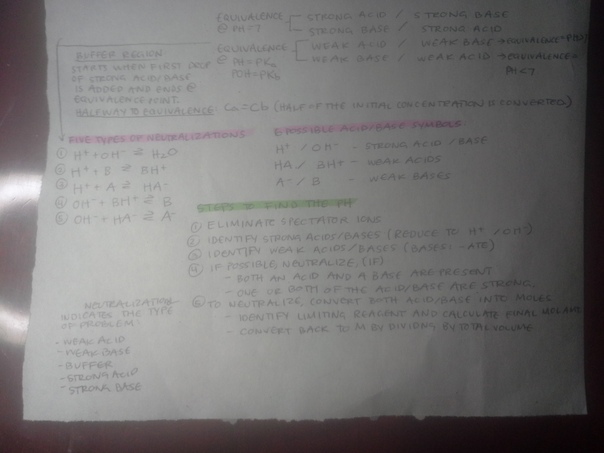 EQUIVALENCE STRONG ACID / STRONG BASE
@ PH<7 STRONG BASE / STRONG ACID
EQUIVALENCE WEAK ACID / WEAK BASE → EQUIVALENCE
@ PH=PKa WEAK BASE / WEAK ACID → EQUIVALENCE
POH=PKb PH<7
BUFFER REGION
STARTS WHEN FIRST DROP
OF STRONG ACID/BASE
IS ADDED AND ENDS @
EQUIVALENCE POINT.
HALFWAY TO EQUIVALENCE: Ca=Cb (HALF OF THE INITIAL CONCENTRATION IS CONVERTED)
FIVE TYPES OF NEUTRALIZATIONS
① H⁺ + OH⁻ ⇌ H₂O
② H⁺ + B ⇌ BH⁺
③ H⁺ + A ⇌ HA⁻
④ OH⁻ + BH⁺ ⇌ B
⑤ OH⁻ + HA⁻ ⇌ A⁻
POSSIBLE ACID/BASE SYMBOLS
H⁺ / OH⁻ - STRONG ACID / BASE
HA / BH⁺ - WEAK ACIDS
A⁻ / B - WEAK BASES
STEPS TO FIND THE PH
① ELIMINATE SPECTATOR IONS
② IDENTIFY STRONG ACIDS/BASES (REDUCE TO H⁺ / OH⁻)
③ IDENTIFY WEAK ACIDS/BASES (BASES: -ATE)
④ IF POSSIBLE NEUTRALIZE, (IF)
- BOTH AN ACID AND A BASE ARE PRESENT
- ONE OR BOTH OF THE ACID/BASE ARE STRONG
⑤ TO NEUTRALIZE, CONVERT BOTH ACID/BASE INTO MOLES
- IDENTIFY LIMITING REAGENT AND CALCULATE FINAL
- CONVERT BACK TO M BY DIVIDING BY TOTAL VOLUME
NEUTRALIZATION
INDICATES THE TYPE
OF PROBLEM:
- WEAK ACID
- WEAK BASE
- BUFFER
- STRONG ACID
- STRONG BASE